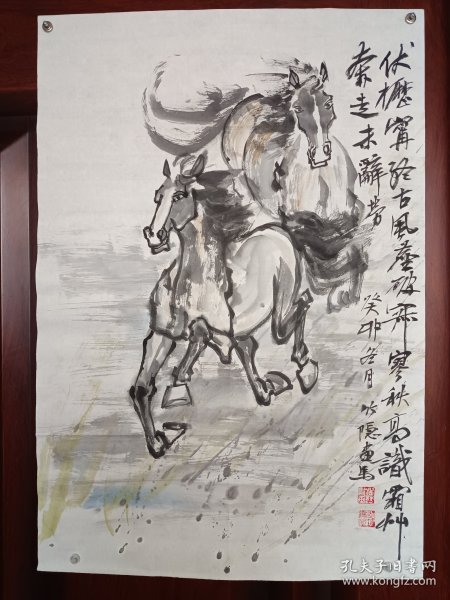 伏櫪甯終古風塵破寂寥秋高識霜艸
奔走未辭勞
癸卯冬月竹隱畫馬
孔夫子旧书网
www.kongfz.com